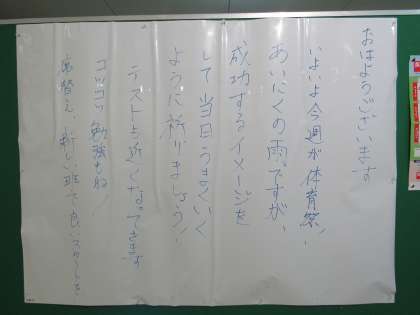 おはようございます
いよいよ今週が体育祭!
あいにくの雨ですが、
成功するイメージを
して当日うまくいく
ように祈りましょう!
テストも近くなってきます
コツコツ勉強もね!
席替え、新しい班で良いスタートを